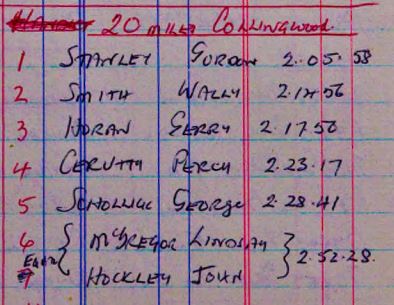 20 miles Collingwood
1 Stanley Gordon 2.05.58
2 Smith Wally 2.17 56
3 Horan Gerry 2.17 56
4 Cerutty Percy 2.23.17
5 George 2.28.41
6 { McGregor Lindsay } 2.52.28.
7 Hockley John